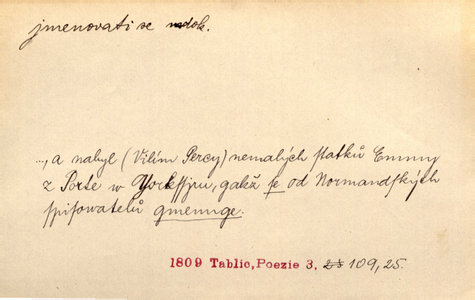 jmenovati se ndok.
..., a nabyl (Vilím Percy) nemalých statků Emmy
z Porte w Yorkssjru, gakž se od Normandských
spisowatelů gmenuge.
1809 Tablic, Poezie 3, 109, 25.